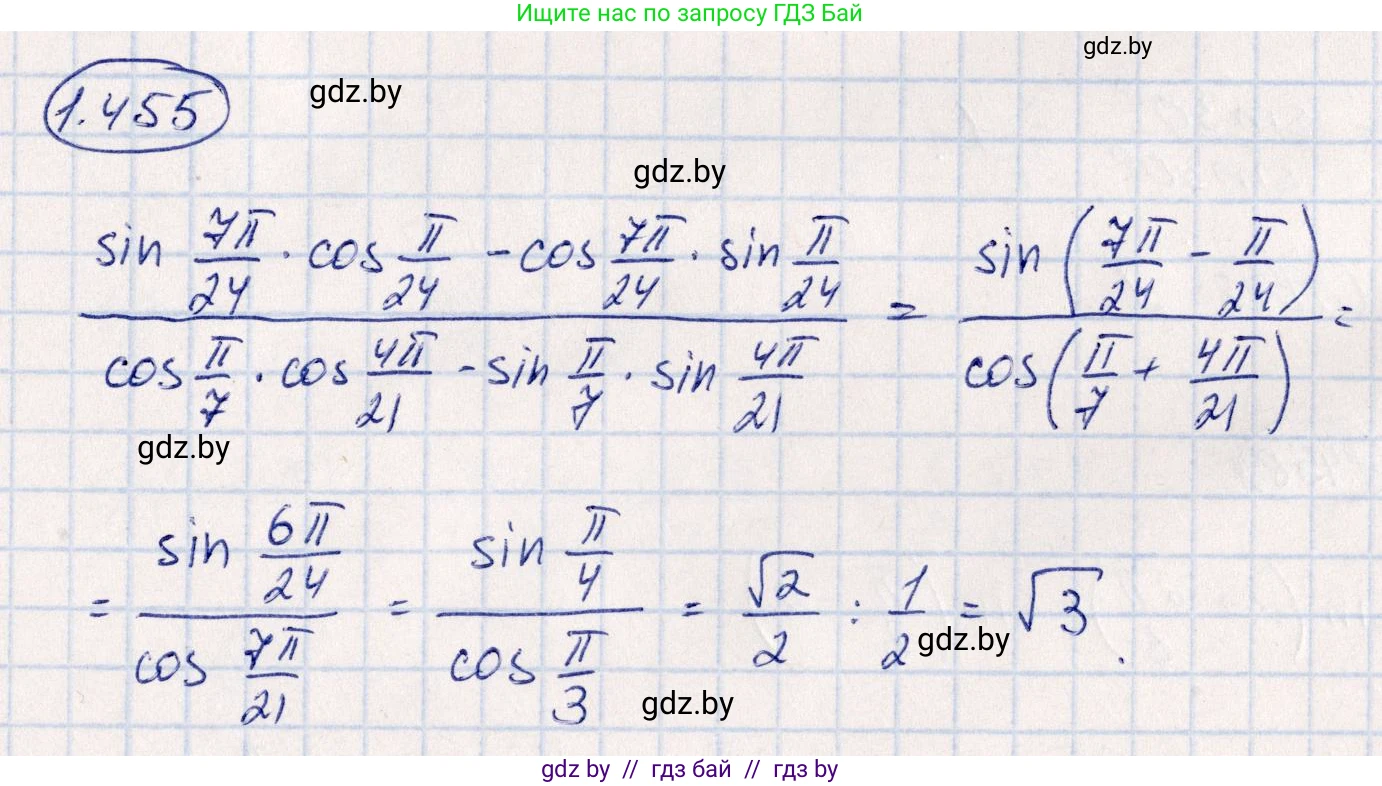 Ищите нас по запросу ГДЗ Бай
gdz.by
1.455
gdz.by
gdz.by
sin 7π/24 · cos π/24 - cos 7π/24 · sin π/24 / cos π/7 · cos 4π/21 - sin π/7 · sin 4π/21 = sin (7π/24 - π/24) / cos (π/7 + 4π/21) =
gdz.by
= sin 6π/24 / cos 7π/21 = sin π/4 / cos π/3 = √2/2 : 1/2 = √3.
gdz.by
gdz.by
gdz by // гдз бай // гдз by